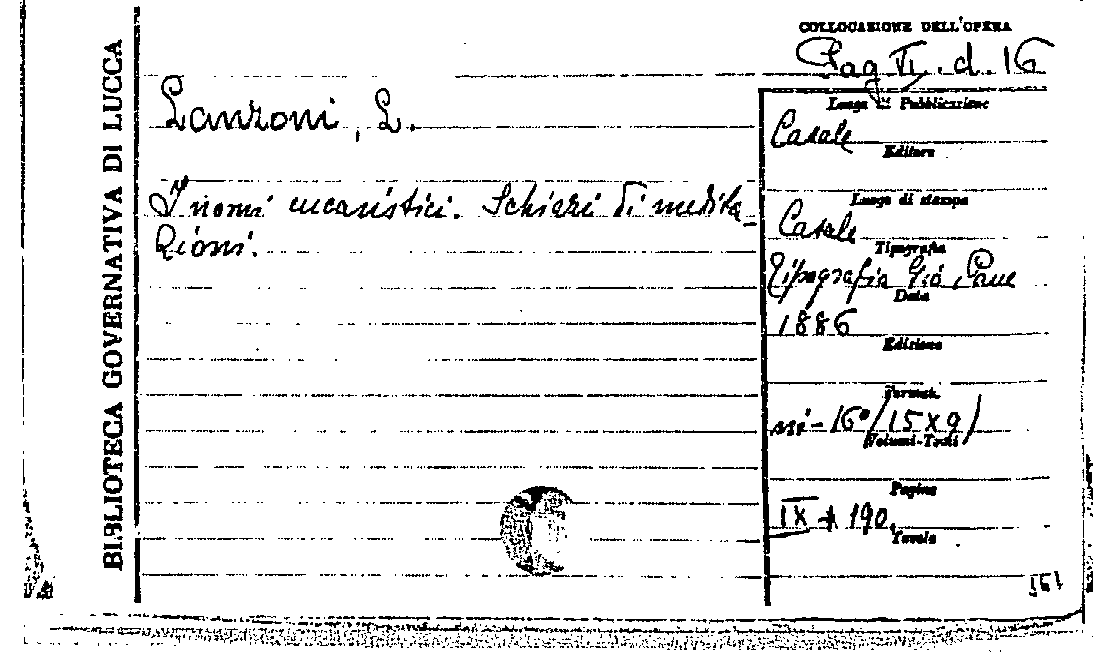 BIBLIOTECA GOVERNATIVA DI LUCCA
COLLOCAZIONE DELL'OPERA
Pag VI. d. 16
Lanzoni, L.
I nomi eucaristici. Schizzi di medita-
zioni.
Luogo di Pubblicazione
Casale
Editore
Luogo di stampa
Casale
Tipografia
Tipografia Gio Pane
Data
1886
Edizione
Format.
in-16°/15x9)
Volumi-Tomi
Pagine
IX + 190.
Tavole